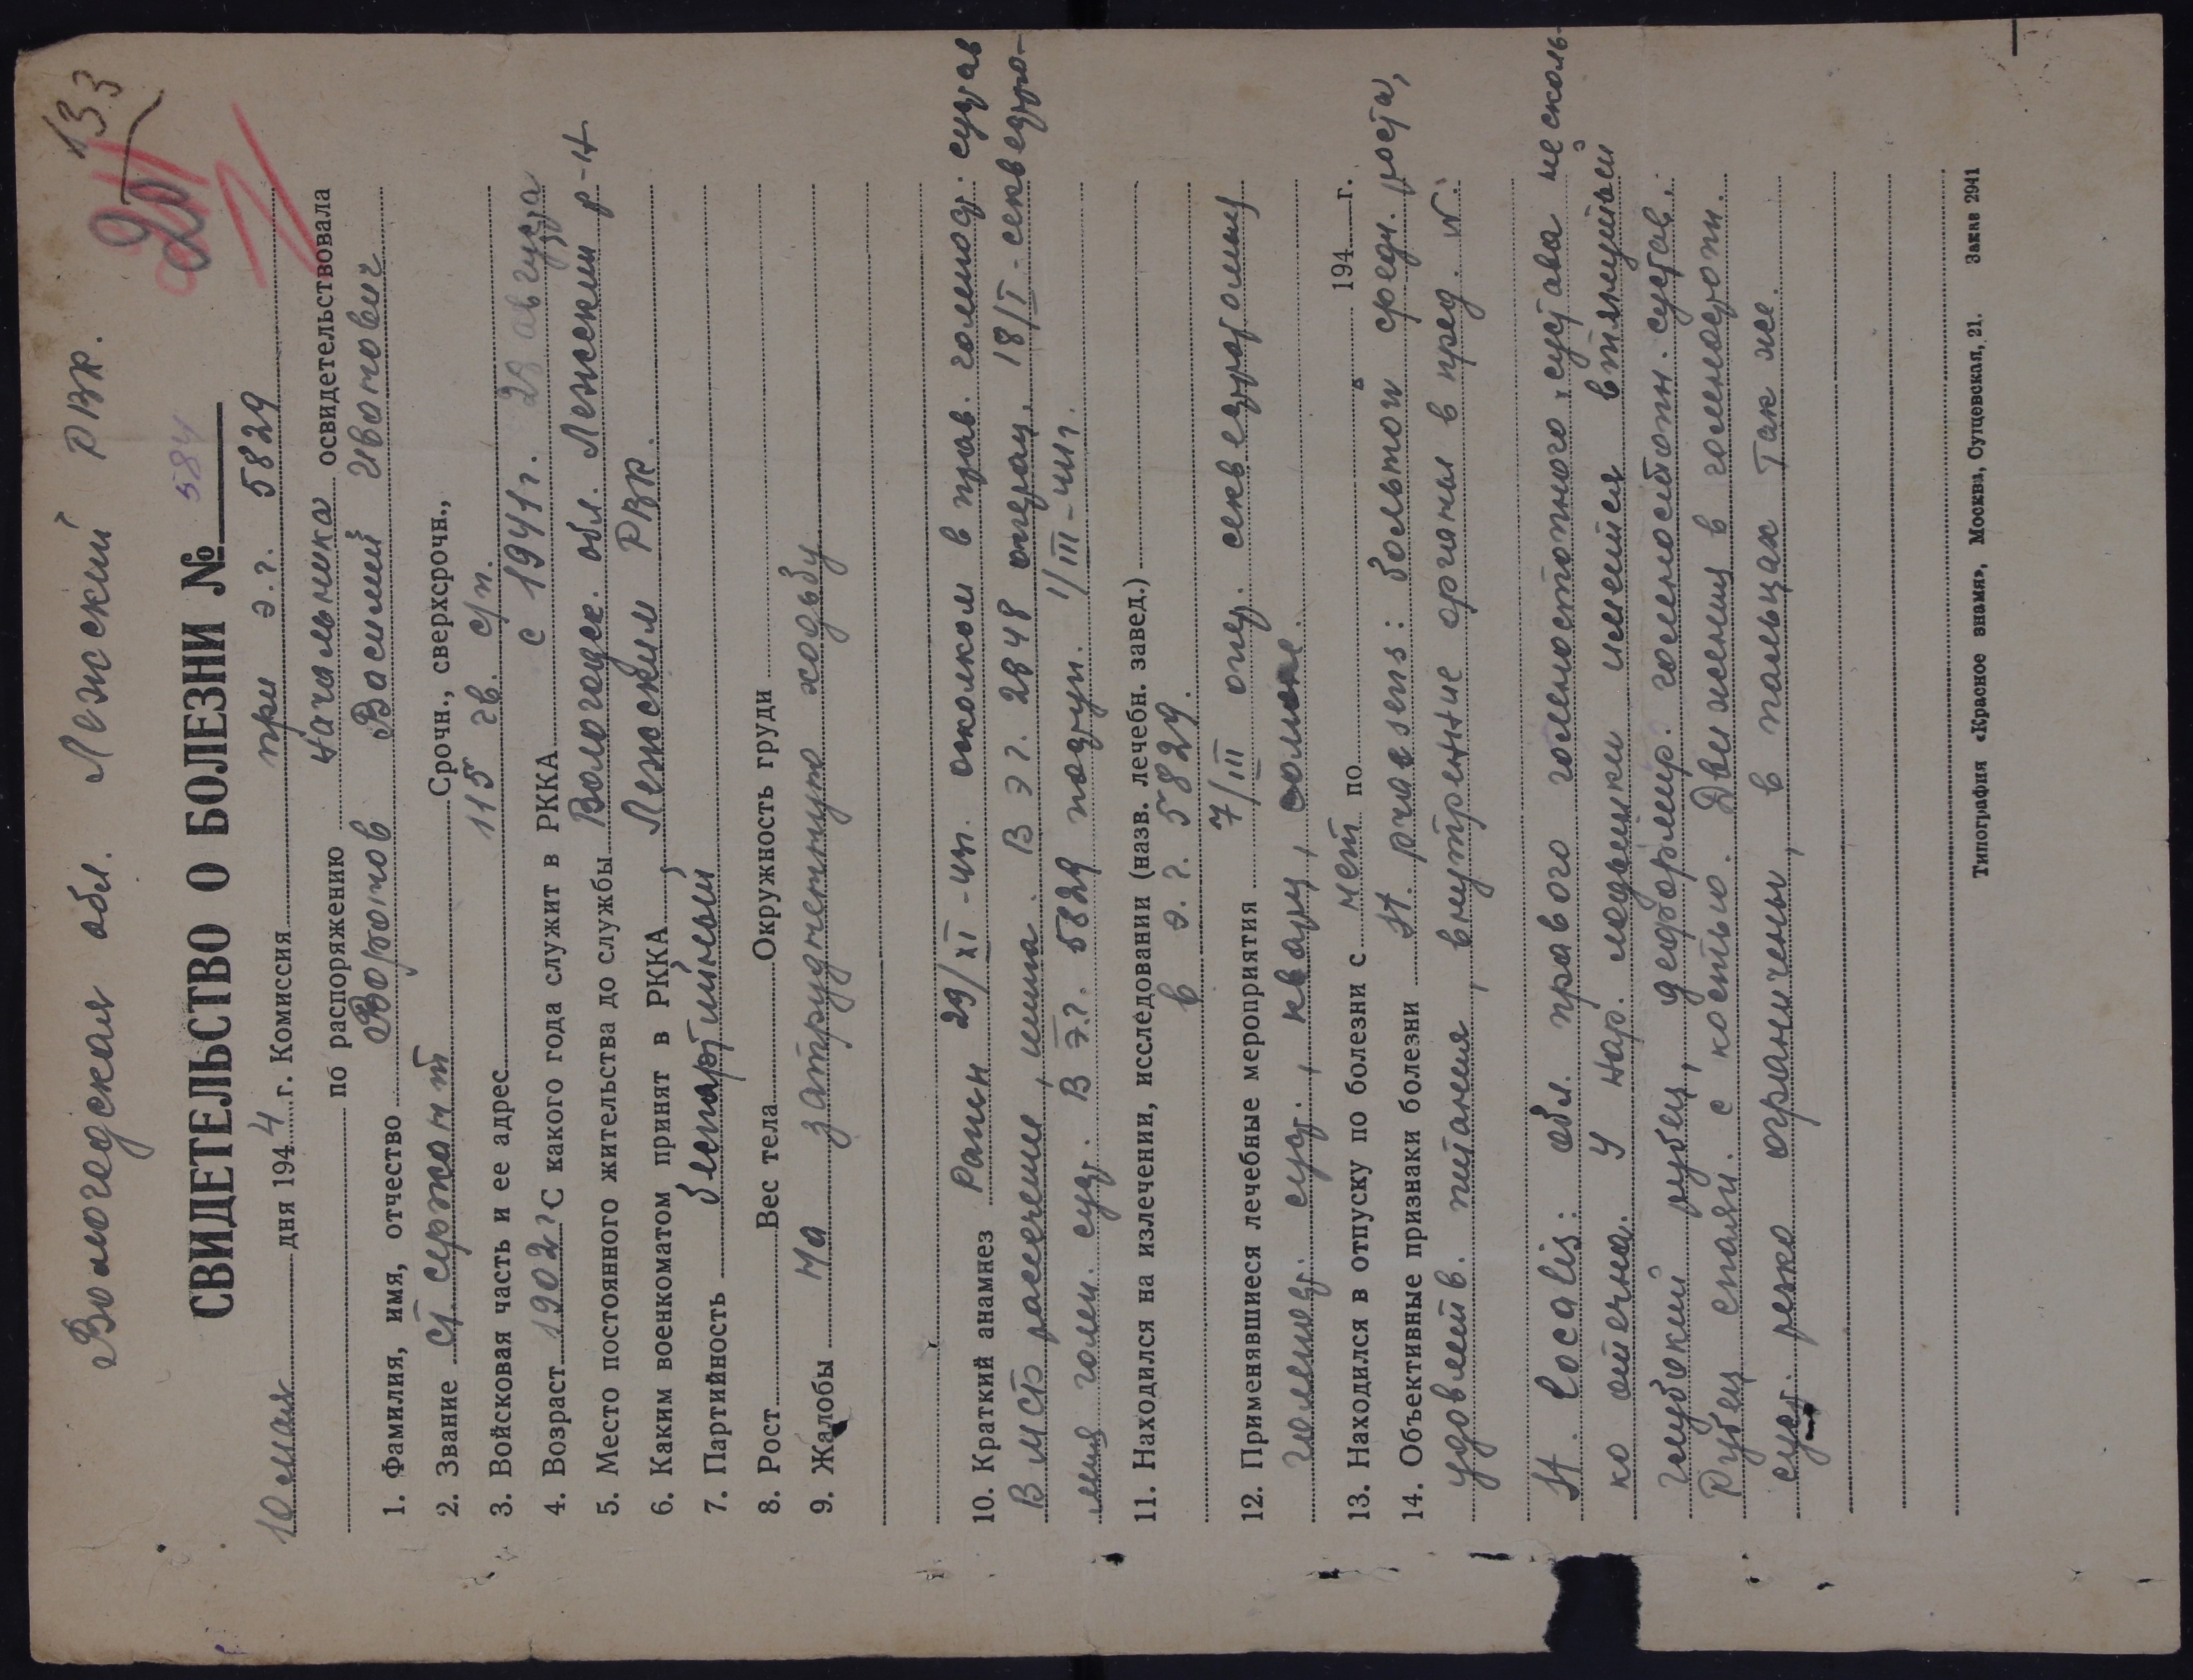 133
Вологодская обл. Лежский РВК.
20
СВИДЕТЕЛЬСТВО О БОЛЕЗНИ № 584
10 мая дня 1944 г. Комиссия при э.г. 5829
по распоряжению начальника освидетельствовала
1. Фамилия, имя, отчество Воронов Василий Иванович
2. Звание ст. сержант Срочн., сверхсрочн.,
3. Войсковая часть и ее адрес 115 гв. с/п.
4. Возраст 1902 г. С какого года служит в РККА с 1941 г. 28 августа
5. Место постоянного жительства до службы Вологодск. обл. Лежский р-н
6. Каким военкоматом принят в РККА Лежским РВК.
7. Партийность беспартийный
8. Рост Вес тела Окружность груди
9. Жалобы На затрудненную ходьбу
10. Краткий анамнез Ранен 29/XI-43г. осколком в прав. голеност. сустав
В МСБ рассечение, шина. В эг. 2848 операц. 18/I- секвестро-
мия голен. суст. В эг. 5829 поступ. 1/III-44г.
11. Находился на излечении, исследовании (назв. лечебн. завед.)
в э.г. 5829.
12. Применявшиеся лечебные мероприятия 7/III опер. секвестротомия
голеност. суст., кварц,
13. Находился в отпуску по болезни с нет по 194 г.
14. Объективные признаки болезни St. praesens: больной средн. роста,
удовлетв. питания, внутренние органы в пред. N.
St. localis: обл. правого голеностопного сустава несколь-
ко отечна. У нар. лодыжки имеется втянутый
глубокий рубец, деформир. голеностопн. сустав.
Рубец спаян с костью. Движения в голеностопн.
суст. резко ограничены, в пальцах так же.
Типография «Красное знамя», Москва, Сущевская, 21. Заказ 2941